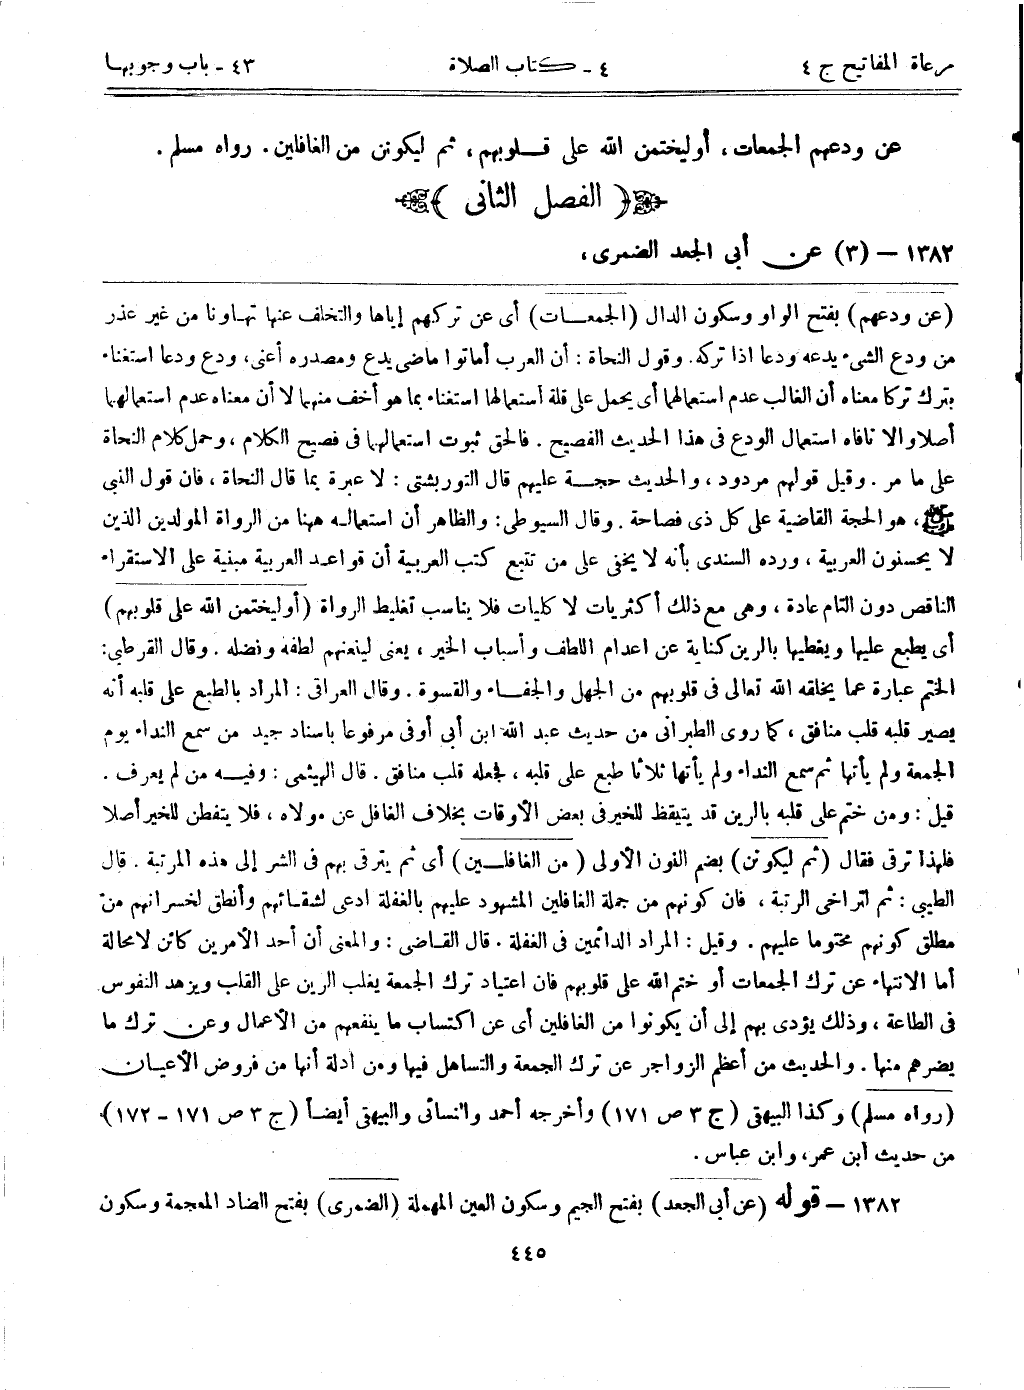 مرعاة المفاتيح ج ٤
٤ ـ كتاب الصلاة
٤٣ ـ باب وجوبها
عن ودعهم الجمعات، أوليختمن الله على قلوبهم، ثم ليكونن من الغافلين. رواه مسلم.
﴿ الفصل الثانى ﴾
١٣٨٢ – (٣) عن أبي الجعد الضمرى،
(عن ودعهم) بفتح الواو وسكون الدال (الجمعات) أى عن تركهم إياها والتخلف عنها تهاونا من غير عذر
من ودع الشىء يدعه ودعا اذا تركه. وقول النحاة: أن العرب أماتوا ماضى يدع ومصدره أعنى، ودع ودعا استغناء
بترك تركا معناه أن الغالب عدم استعمالهما أى يحمل على قلة أستعمالها استغناء بما هو أخف منهما لا أن معناه عدم استعمالهما
أصلا والا نافاه استعمال الودع فى هذا الحديث الفصيح. فالحق ثبوت استعمالهما فى فصيح الكلام، وحمل كلام النحاة
على ما مر. وقيل قولهم مردود، والحديث حجة عليهم قال التوربشتى: لا عبرة بما قال النحاة، فان قول النبى
ﷺ، هو الحجة القاضية على كل ذى فصاحة. وقال السيوطى: والظاهر أن استعماله ههنا من الرواة المولدين الذين
لا يحسنون العربية، ورده السندى بأنه لا يخفى على من تتبع كتب العربية أن قواعد العربية مبنية على الاستقراء
الناقص دون التام عادة، وهى مع ذلك أكثريات لا كليات فلا يناسب تغليط الرواة (أوليختمن الله على قلوبهم)
أى يطبع عليها ويغطيها بالرين كناية عن اعدام اللطف وأسباب الخير، يعنى ليمنعنهم لطفه وفضله. وقال القرطبى:
الختم عبارة عما يخلقه الله تعالى فى قلوبهم من الجهل والجفاء والقسوة. وقال العراقى: المراد بالطبع على قلبه أنه
يصير قلبه قلب منافق، كما روى الطبرانى من حديث عبد الله ابن أبي أوفى مرفوعا باسناد جيد من سمع النداء يوم
الجمعة ولم يأتها ثم سمع النداء ولم يأتها ثلاثا طبع على قلبه، فجعله قلب منافق. قال الهيثمى: وفيه من لم يعرف.
قيل: ومن ختم على قلبه بالرين قد يتيقظ للخير فى بعض الأوقات بخلاف الغافل عن مولاه، فلا يتفطن للخير أصلا
فلهذا ترقى فقال (ثم ليكونن) بضم النون الأولى (من الغافلين) أى ثم يترقى بهم فى الشر إلى هذه المرتبة. قال
الطيبى: ثم لتراخى الرتبة، فان كونهم من جملة الغافلين المشهود عليهم بالغفلة ادعى لشقائهم وأنطق لخسرانهم من
مطلق كونهم مختوما عليهم. وقيل: المراد الدائمين فى الغفلة. قال القاضى: والمعنى أن أحد الأمرين كائن لا محالة
أما الانتهاء عن ترك الجمعات أو ختم الله على قلوبهم فان اعتياد ترك الجمعة يغلب الرين على القلب ويزهد النفوس
فى الطاعة، وذلك يؤدى بهم إلى أن يكونوا من الغافلين أى عن اكتساب ما ينفعهم من الأعمال وعن ترك ما
يضرهم منها. والحديث من أعظم الزواجر عن ترك الجمعة والتساهل فيها ومن ادلة أنها من فروض الأعيان
(رواه مسلم) وكذا البيهقى (ج ٣ ص ١٧١) وأخرجه أحمد والنسائى والبيهقى أيضاً (ج ٣ ص ١٧١ – ١٧٢)
من حديث ابن عمر، وابن عباس.
١٣٨٢ – قوله (عن أبي الجعد) بفتح الجيم وسكون العين المهملة (الضمرى) بفتح الضاد المعجمة وسكون
٤٤٥